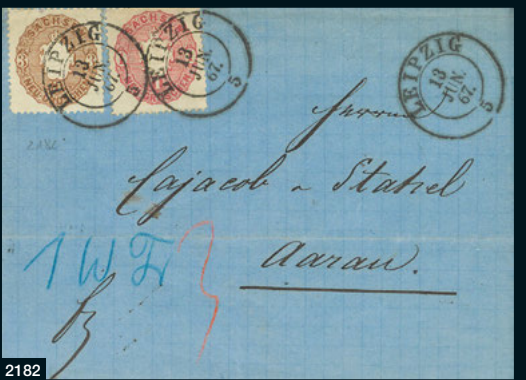 SACHSEN
SACHSEN
LEIPZIG
13
JUN.
67.
5
LEIPZIG
13
JUN.
67.
5
LEIPZIG
13
JUN.
67.
5
2182
Herrn
Cajacob & Stahel
Aarau.
1 W Fr
3
fr
2182